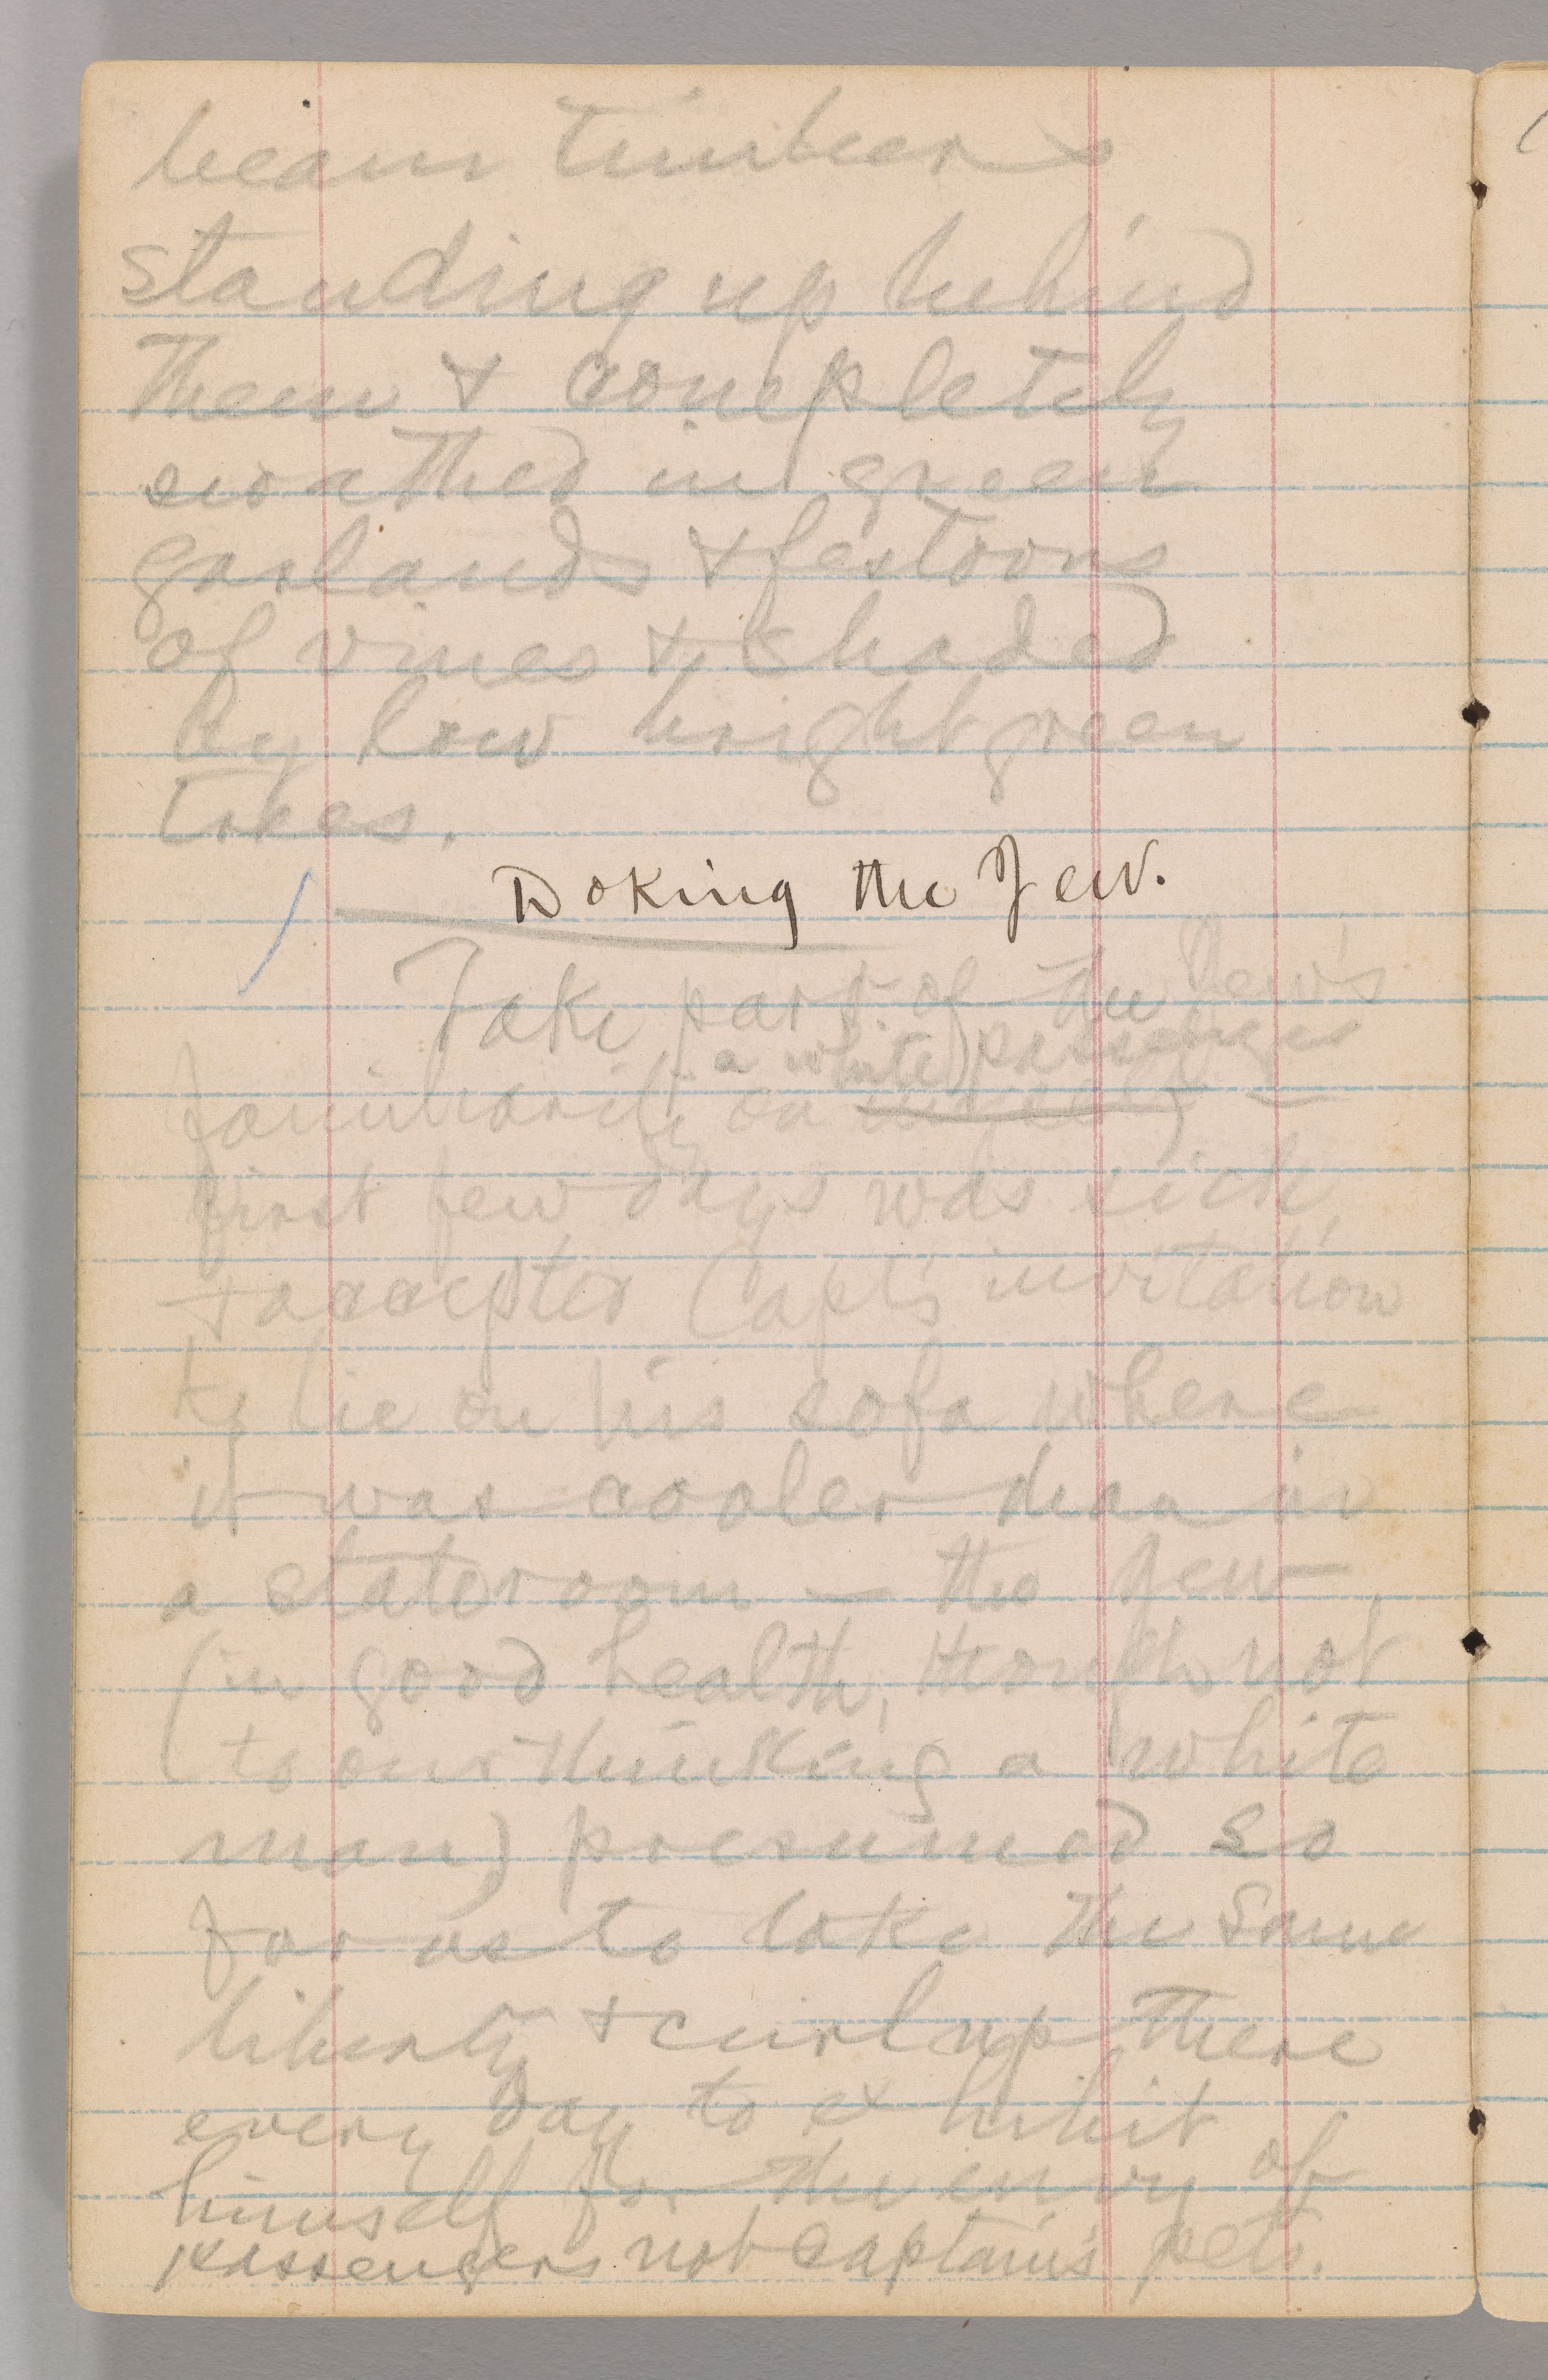 beam timbers
standing up behind
them & completely
swathed in green
garlands & festoons
of vines & shaded
by low bright green
trees.
Doking the Jew.
Take part of the Jew's
a white) passenger
familiarity on
first few days was sick,
& accepted Capt's invitation
to lie on his sofa where
it was cooler than in
a stateroom — the Jew
(in good health, though not
to our thinking a white
man) presumed so
far as to take the same
liberty & curl up there
every day to exhibit
himself for the envy of
passengers not captain's pets.